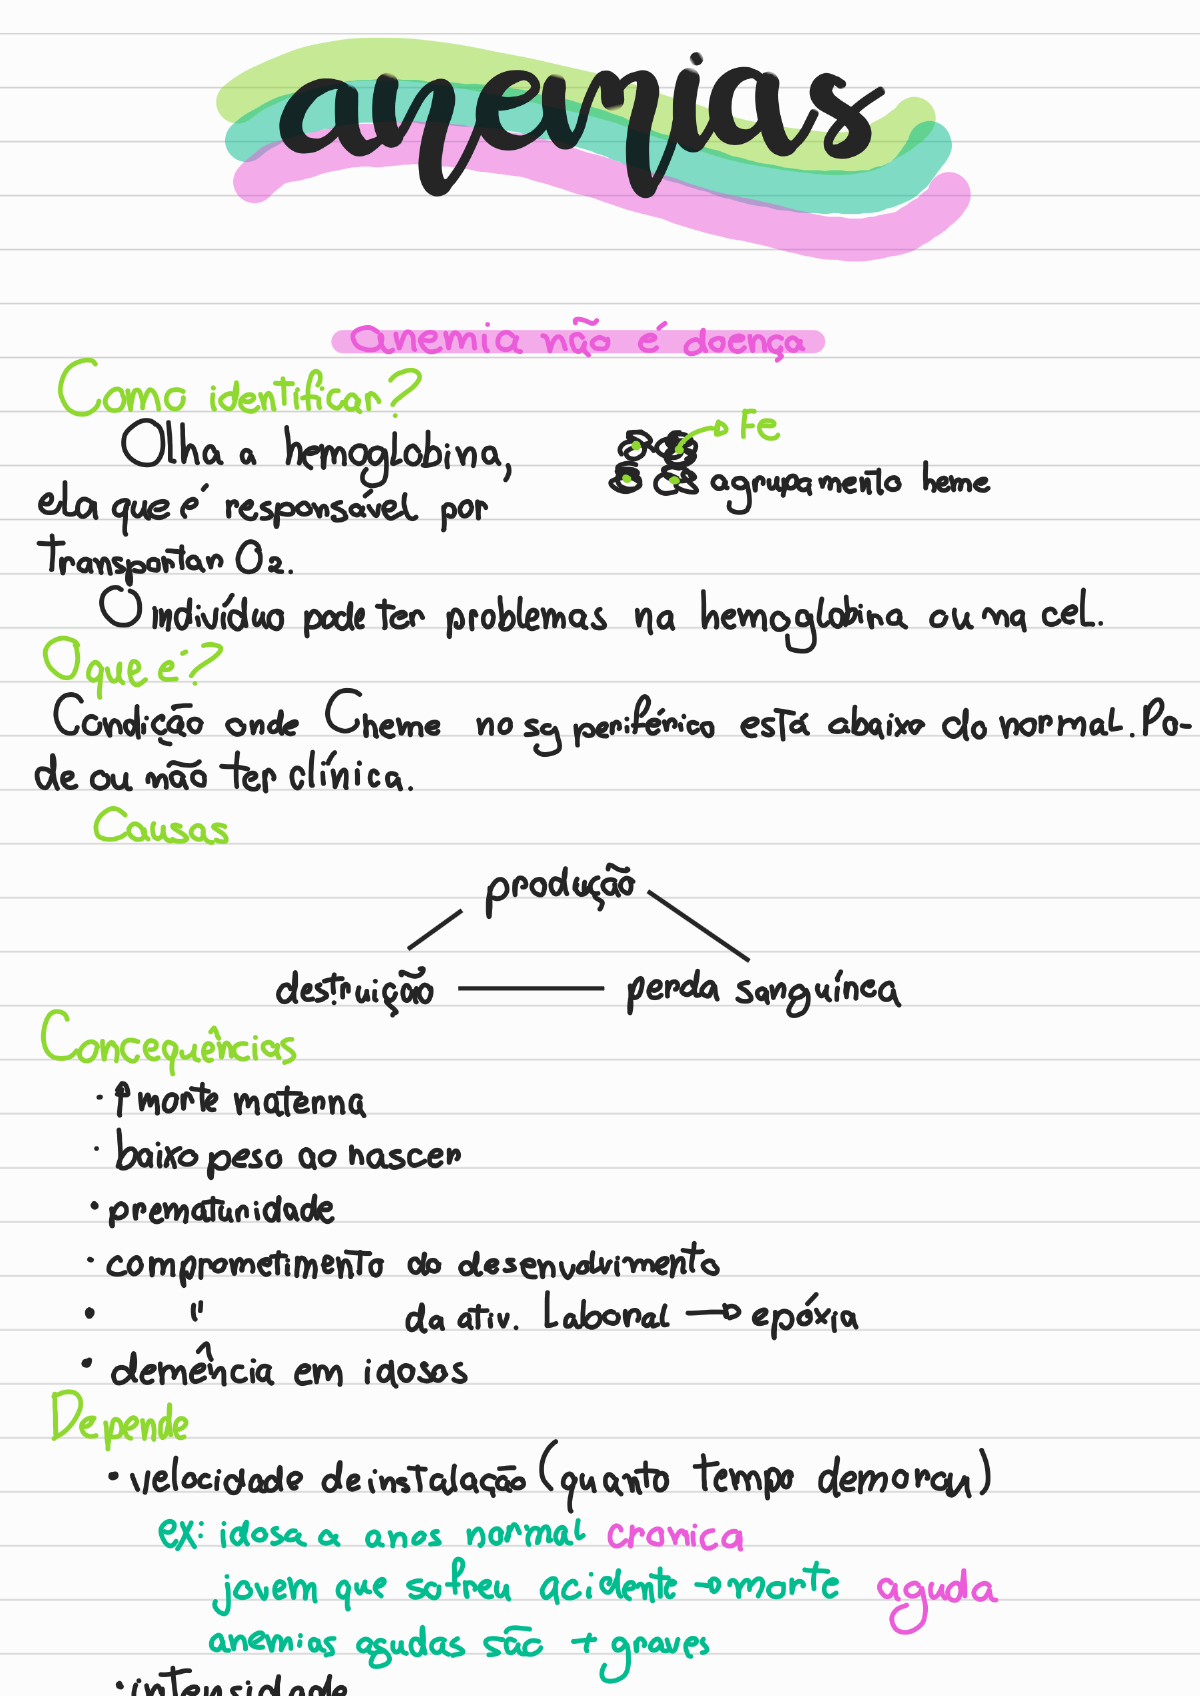 anemias
anemia não é doença
Como identificar?
Olha a hemoglobina,
ela que é responsável por
transportar O2.
Fe
agrupamento heme
O indivíduo pode ter problemas na hemoglobina ou na cel.
O que é?
Condição onde Cheme no sg periférico está abaixo do normal. Po-
de ou não ter clínica.
Causas
produção
destruição — perda sanguínea
Concequências
· ↑ morte materna
· baixo peso ao nascer
· prematuridade
· comprometimento do desenvolvimento
· " da ativ. Laboral → epóxia
· demência em idosos
Depende
· velocidade de instalação (quanto tempo demorou)
ex: idosa a anos normal cronica
jovem que sofreu acidente → morte aguda
anemias agudas são + graves
· intensidade